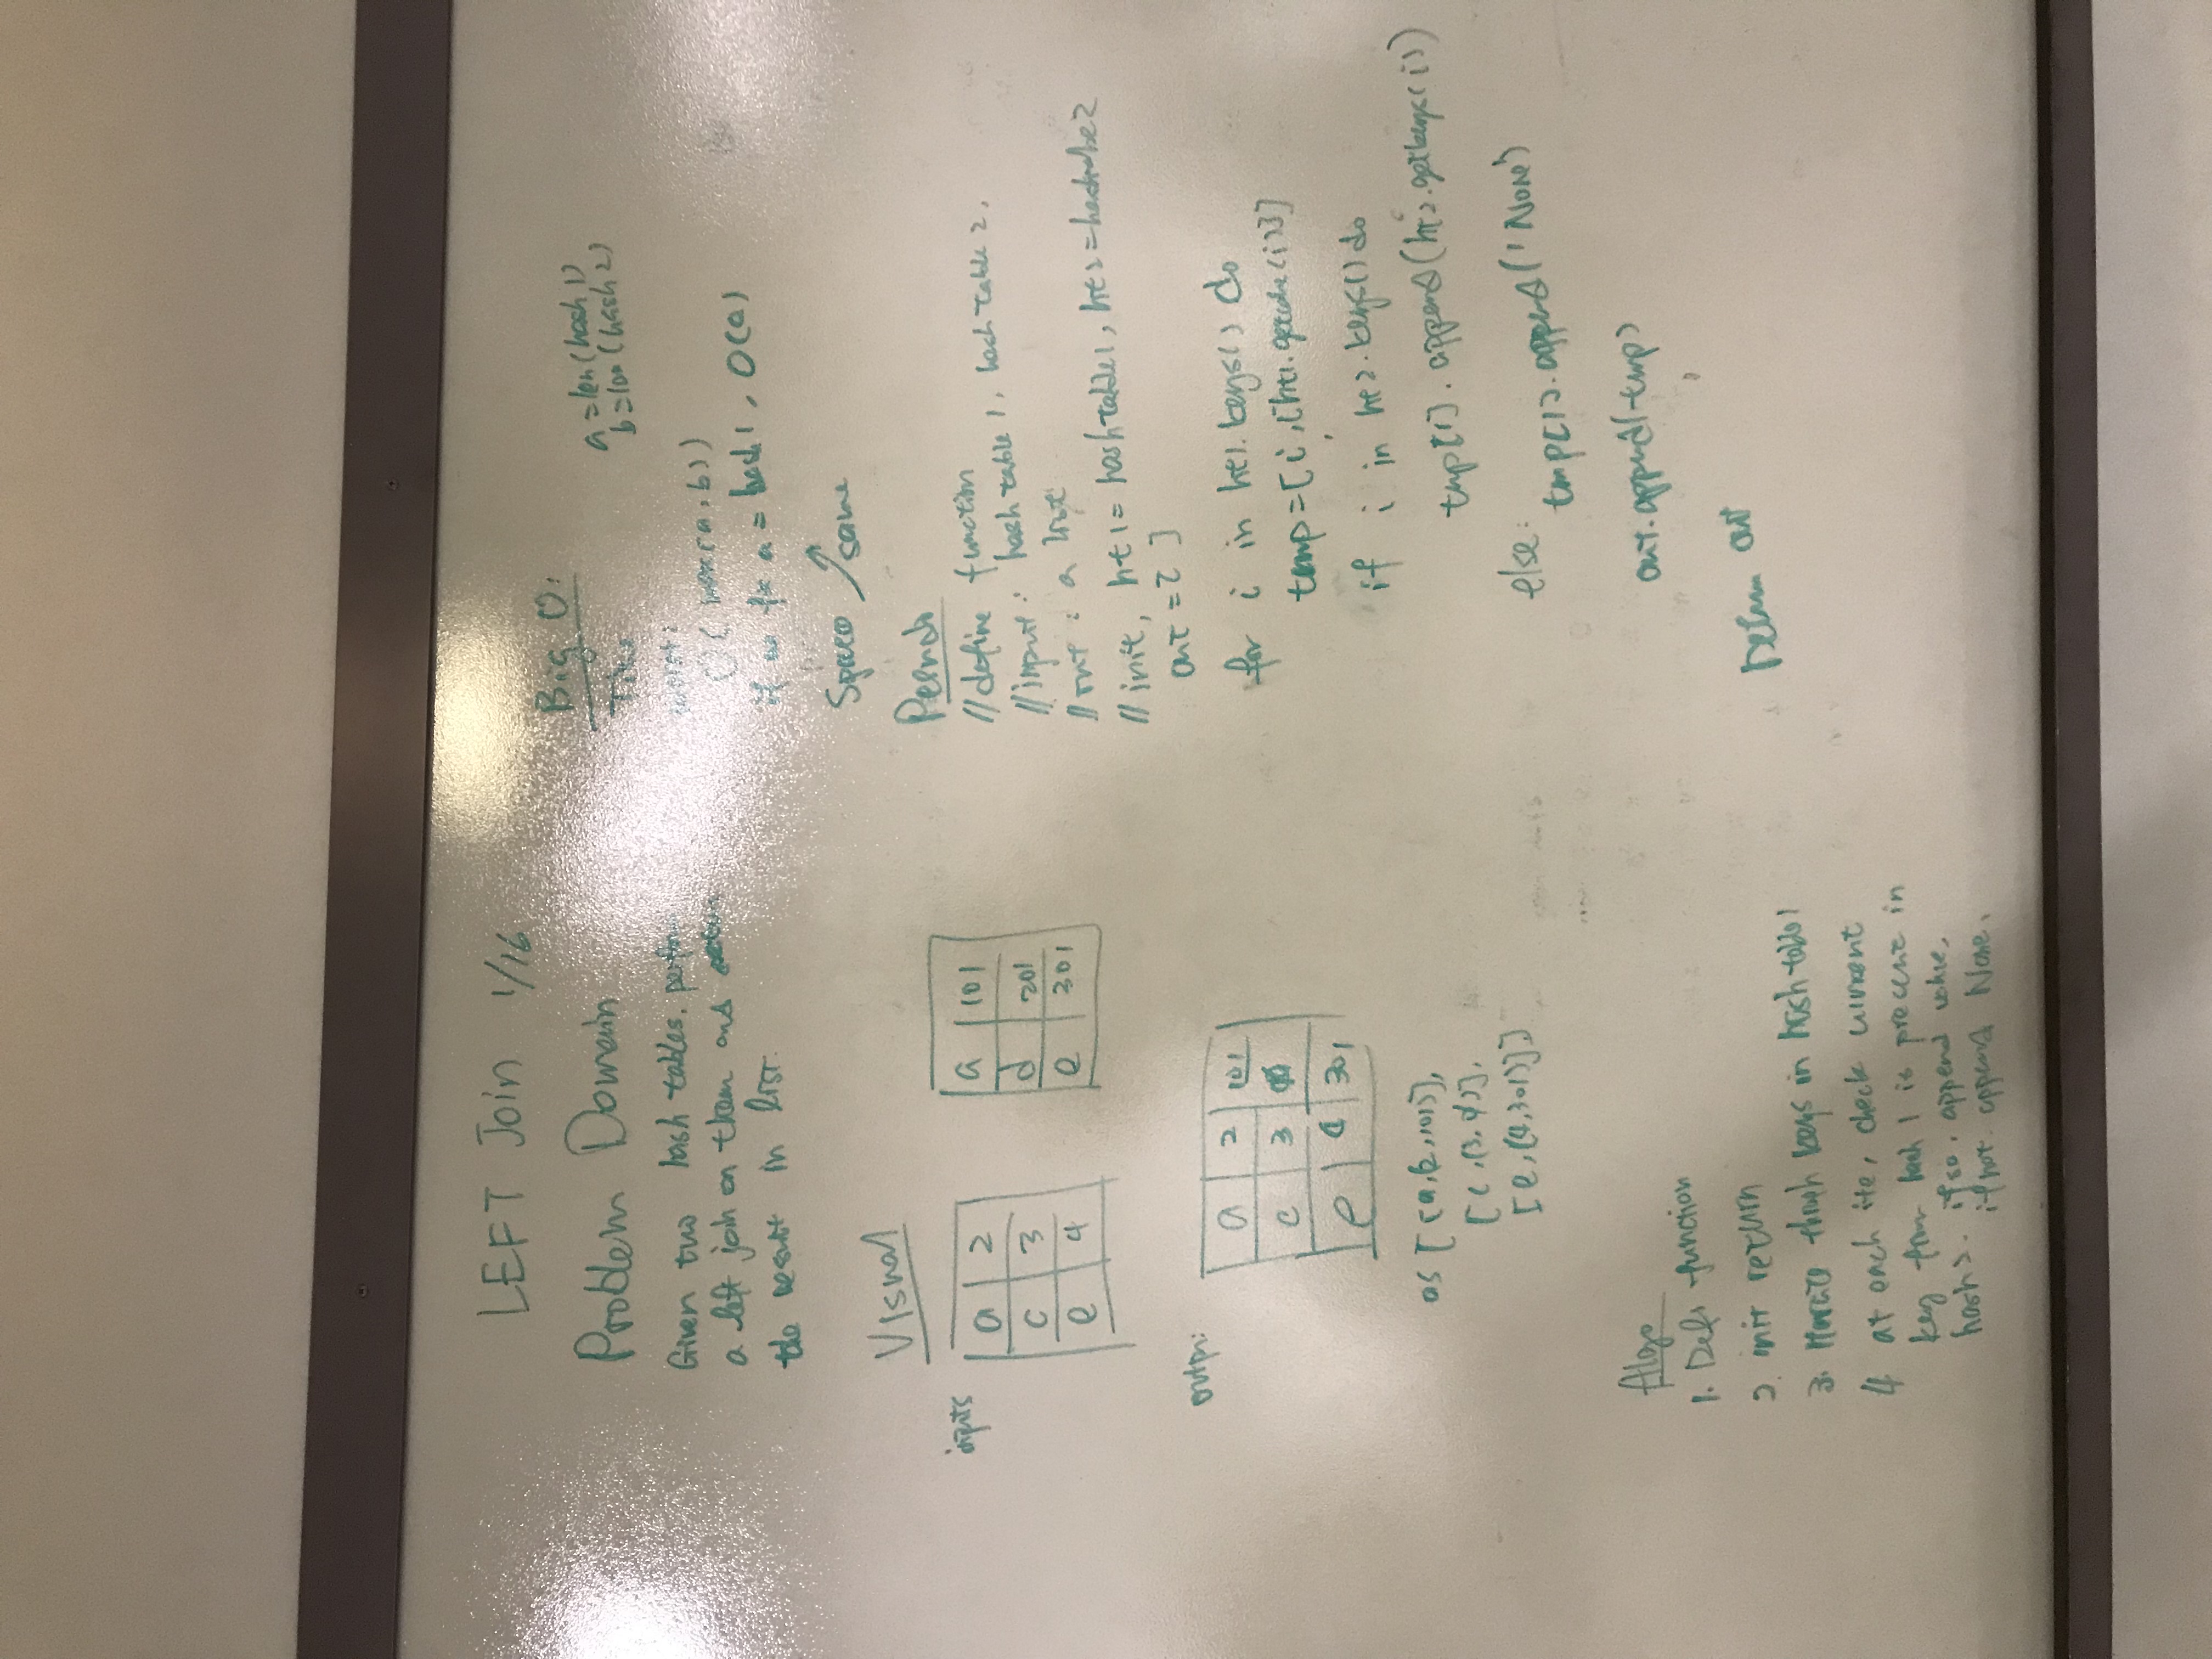 LEFT Join 1/16
Problem Domain
Given two hash tables, perform
a left join on them and return
the result in list.
Visual
inputs
a 2
c 3
e 4
a 101
d 201
e 301
output:
a 2 101
c 3
e 4 301
as [
[e, (4,301)]]
Algo
1. Defi function
2. init return
3. Iterate through keys in hash table 1
4 at each ite, check current
key from hash 1 is present in
hash2. if so, append value,
if not. append None.
Big O:
Time
a = len(hash 1)
b = len(hash 2)
worst:
O( max(a, b))
a = hash 1, O(a)
Space same
Pseudo
// define function
// input: hash table 1, hash table 2,
// out: a list
// init, ht1 = hashtable1, ht2 = hashtable2
out = [ ]
for i in ht1.keys() do
tmp = [i, [ht1.getvalue(i)]]
if i in ht2.keys() do
tmp[1].append(ht2.getkeys(i))
else:
tmp[1].append('None')
out.append(tmp)
Return out